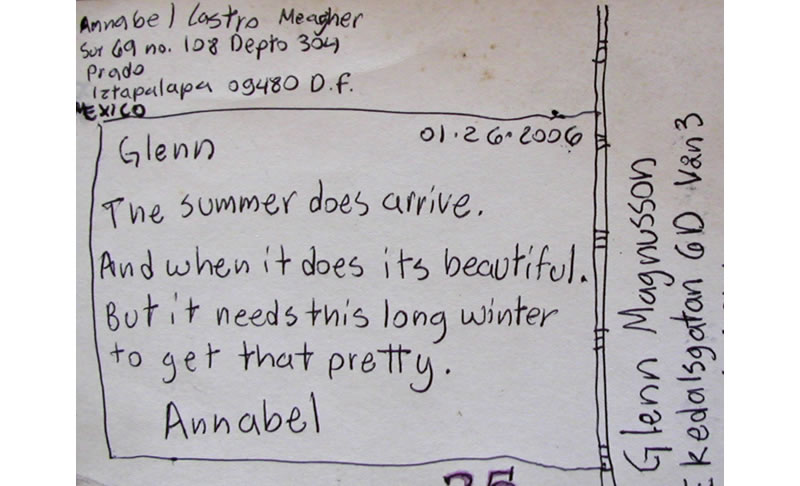 Annabel Castro Meagher
Sur 69 no. 108 Depto 304
Prado
Iztapalapa 09480 D.f.
MEXICO
01.26.2006
Glenn
The summer does arrive.
And when it does its beautiful.
But it needs this long winter
to get that pretty.
Annabel
Glenn Magnusson
Ekedalsgatan 6D Vån3